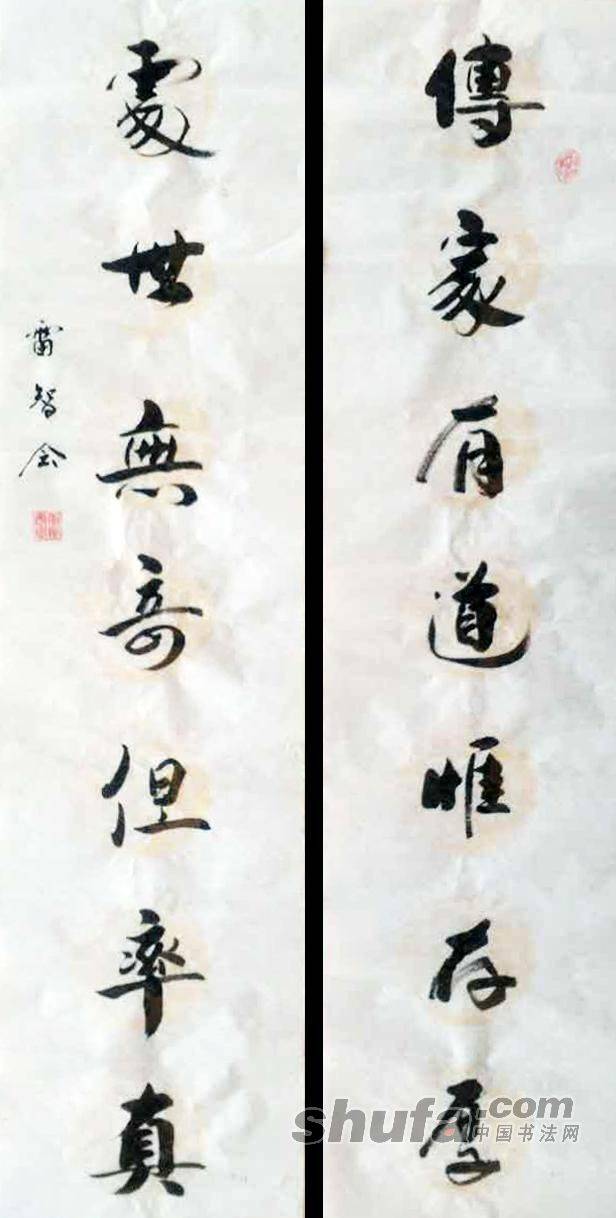 傳家有道唯存厚
處世無奇但率真
雷智会
shufa.com
中国书法网